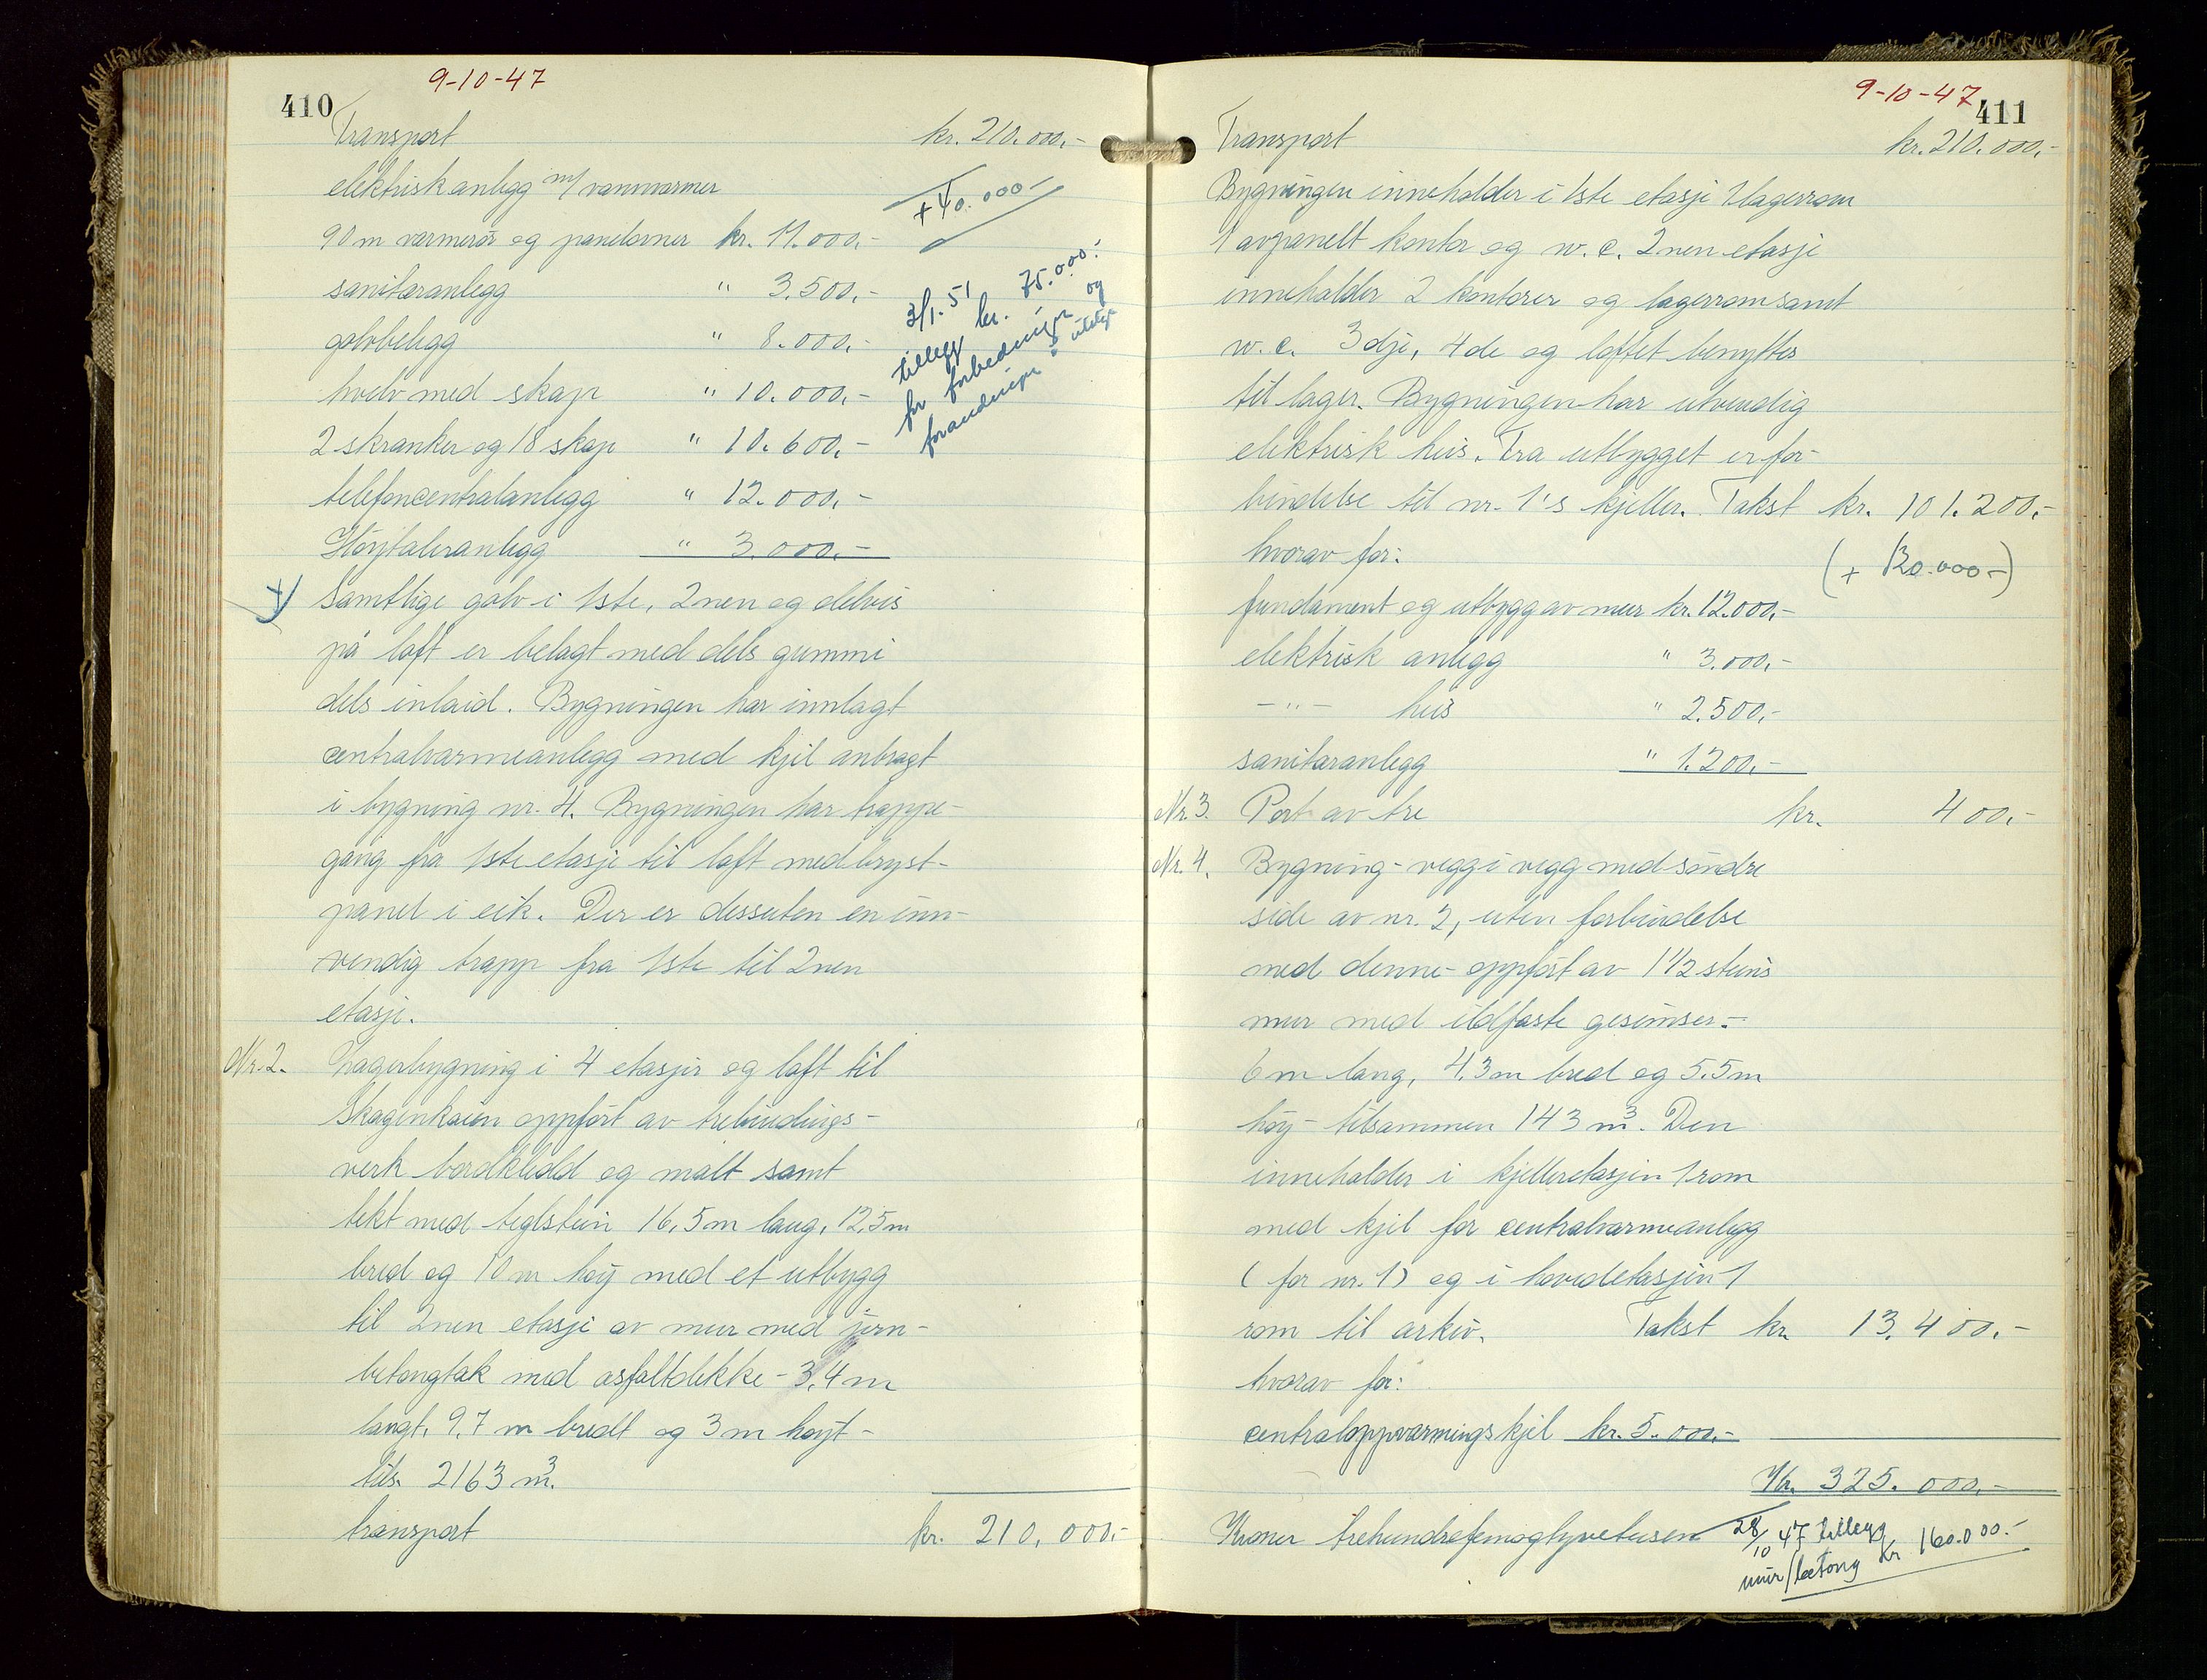 410
9-10-47
Transport kr. 210.000,-
elektrisk anlegg m/ vannvarmer
90 m varmerör og panelovner kr. 11.000,-
+ 40.000,-
sanitæranlegg " 3.500,-
golvbelegg " 8.000,-
hvelv med skap " 10.000,-
2 skranker og 18 skap " 10.600,-
telefoncentralanlegg " 12.000,-
Höytaleranlegg " 3.000,-
3/1. 51
tillegg kr. 75.000.-
for forbedringer og
forandringer
Samtlige golv i 1ste, 2nen og delvis
på loft er belagt med dels gummi
dels inlaid. Bygningen har innlagt
centralvarmeanlegg med kjel anbragt
i bygning nr. 4. Bygningen har trappe-
gang fra 1ste etasje til loft med bryst-
panel i eik. Der er dessuten en inn-
vendig trapp fra 1ste til 2nen
etasje.
Nr. 2. Lagerbygning i 4 etasjer og loft til
Skagenkaien oppfört av trebindings-
verk bordkledd og malt samt
tekt med teglstein 16,5 m lang, 12,5 m
bred og 10 m höy med et utbygg
til 2nen etasje av mur med jern-
betongtak med asfaltdekke - 3,4 m
langt, 9,7 m bredt og 3 m höyt -
tils. 2163 m³.
transport kr. 210.000,-
9-10-47
411
Transport kr. 210.000,-
Bygningen inneholder i 1ste etasje 1 lagerrom
1 avpanelt kontor og w.c. 2nen etasje
inneholder 2 kontorer og lagerrom samt
w.c. 3dje, 4de og loftet benyttes
til lager. Bygningen har utvendig
elektrisk heis. Fra utbygget er for-
bindelse til nr. 1's kjeller. Takst kr. 101.200,-
hvorav for:
(+ 120.000-)
fundament og utbygg av mur kr. 12.000,-
elektrisk anlegg " 3.000,-
- " - heis " 2.500,-
sanitæranlegg " 1.200,-
Nr. 3. Port av tre kr. 400,-
Nr. 4. Bygning - vegg i vegg med söndre
side av nr. 2, uten forbindelse
med denne - oppfört av 1 1/2 steins
mur med ildfaste gesimser -
6 m lang, 4,3 m bred og 5,5 m
höy - tilsammen 143 m³. Den
inneholder i kjelleretasjen 1 rom
med kjel for centralvarmeanlegg
( for nr. 1) og i hovedetasjen 1
rom til arkiv. Takst kr. 13.400,-
hvorav for:
centraloppvarmingskjel kr. 5.000,-
Kr. 325.000,-
Kroner trehundreogfemogtyvetusen
28/10 47 tillegg
mur/betong kr 160.000.-